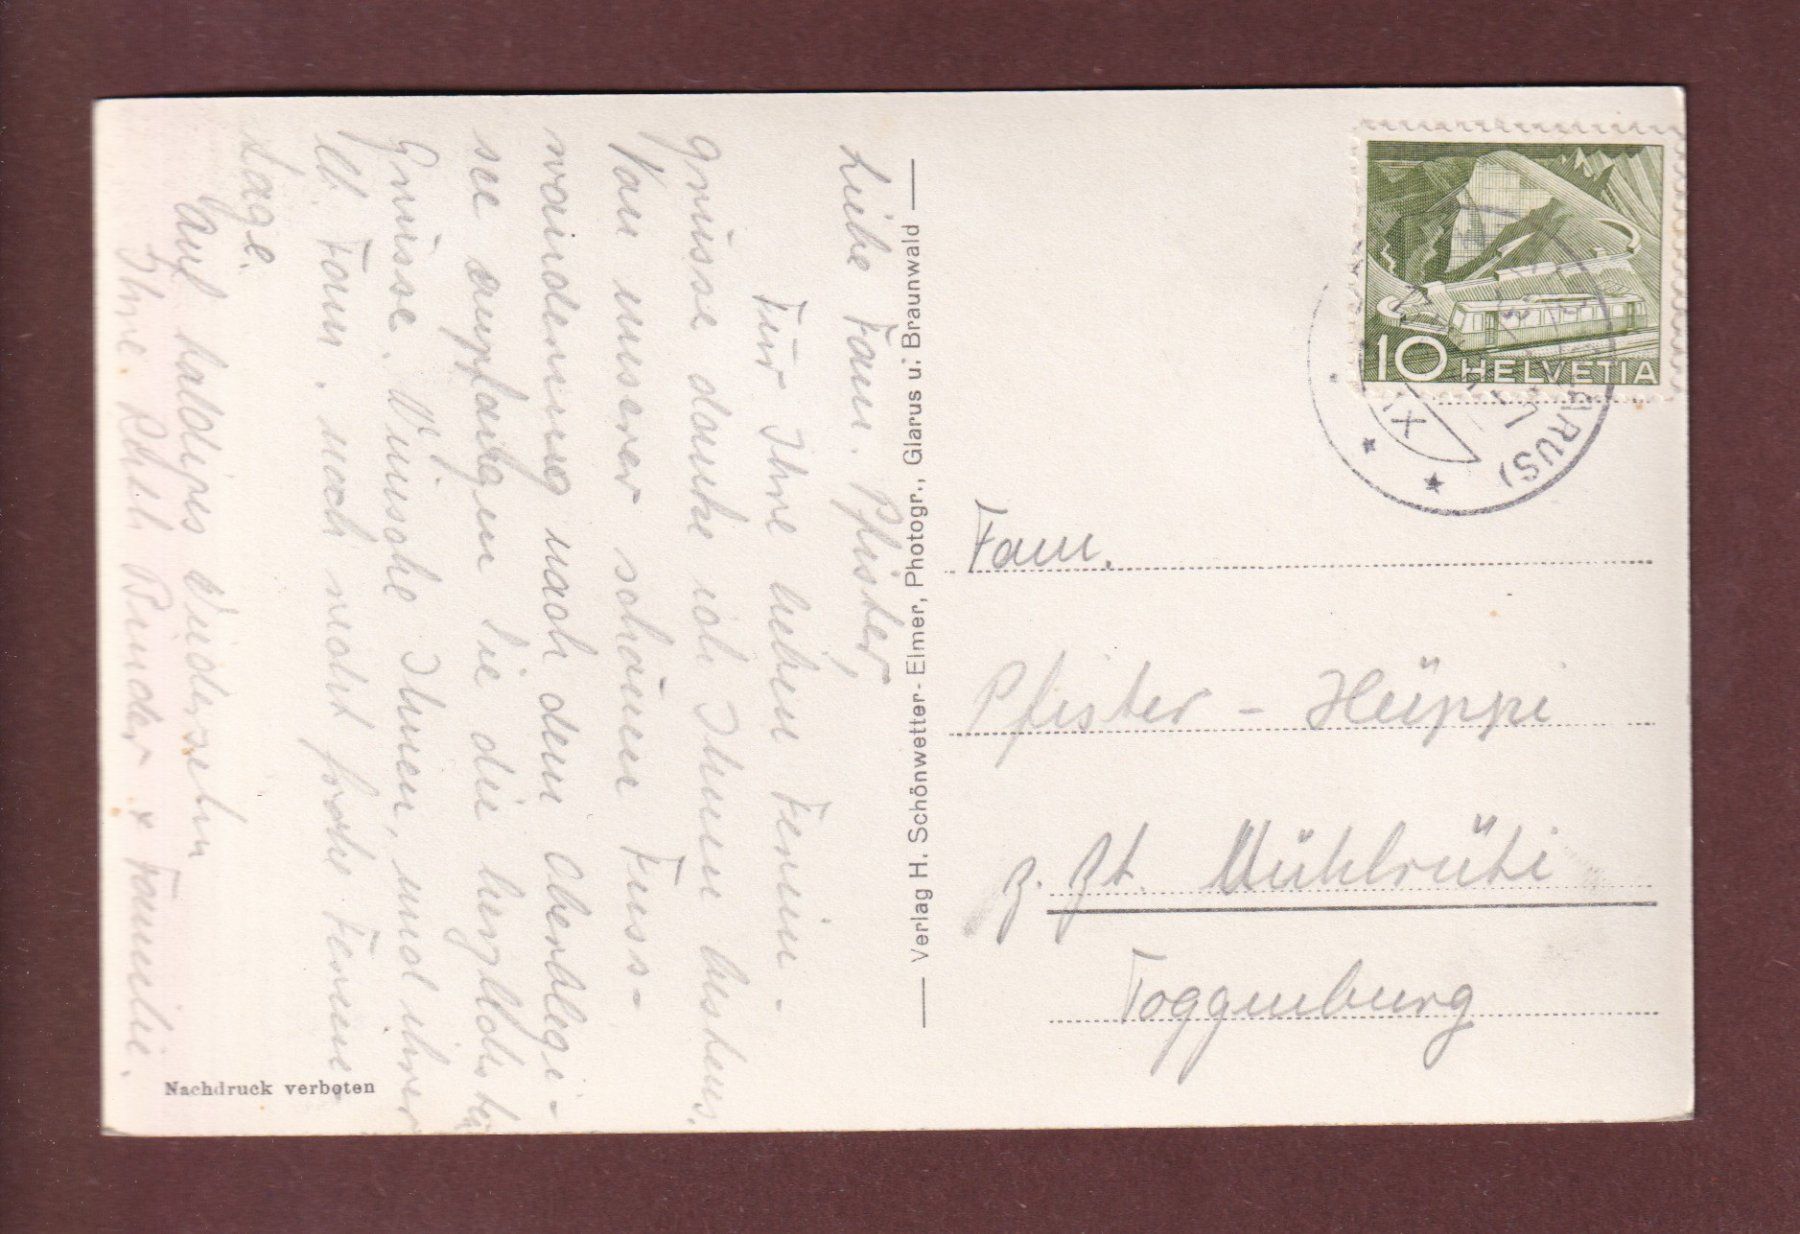 Liebe Fam. Pfister,
Für Ihre lieben Ferien-
grüsse danke ich Ihnen bestens.
Von unserer schönen Fuss-
wanderung nach dem Oberblegi-
see empfangen Sie die herzlichsten
Grüsse. Wünsche Ihnen, und ihrer
lb. Fam. noch recht frohe Ferien-
tage.
Auf baldiges Wiedersehn
Ihre Ruth Binder + Familie.
Nachdruck verboten
Verlag H. Schönwetter-Elmer, Photogr., Glarus u. Braunwald
10 HELVETIA
RUS)
XI
Fam.
Pfister - Hüppi
z. Zt. Mühlrüti
Toggenburg